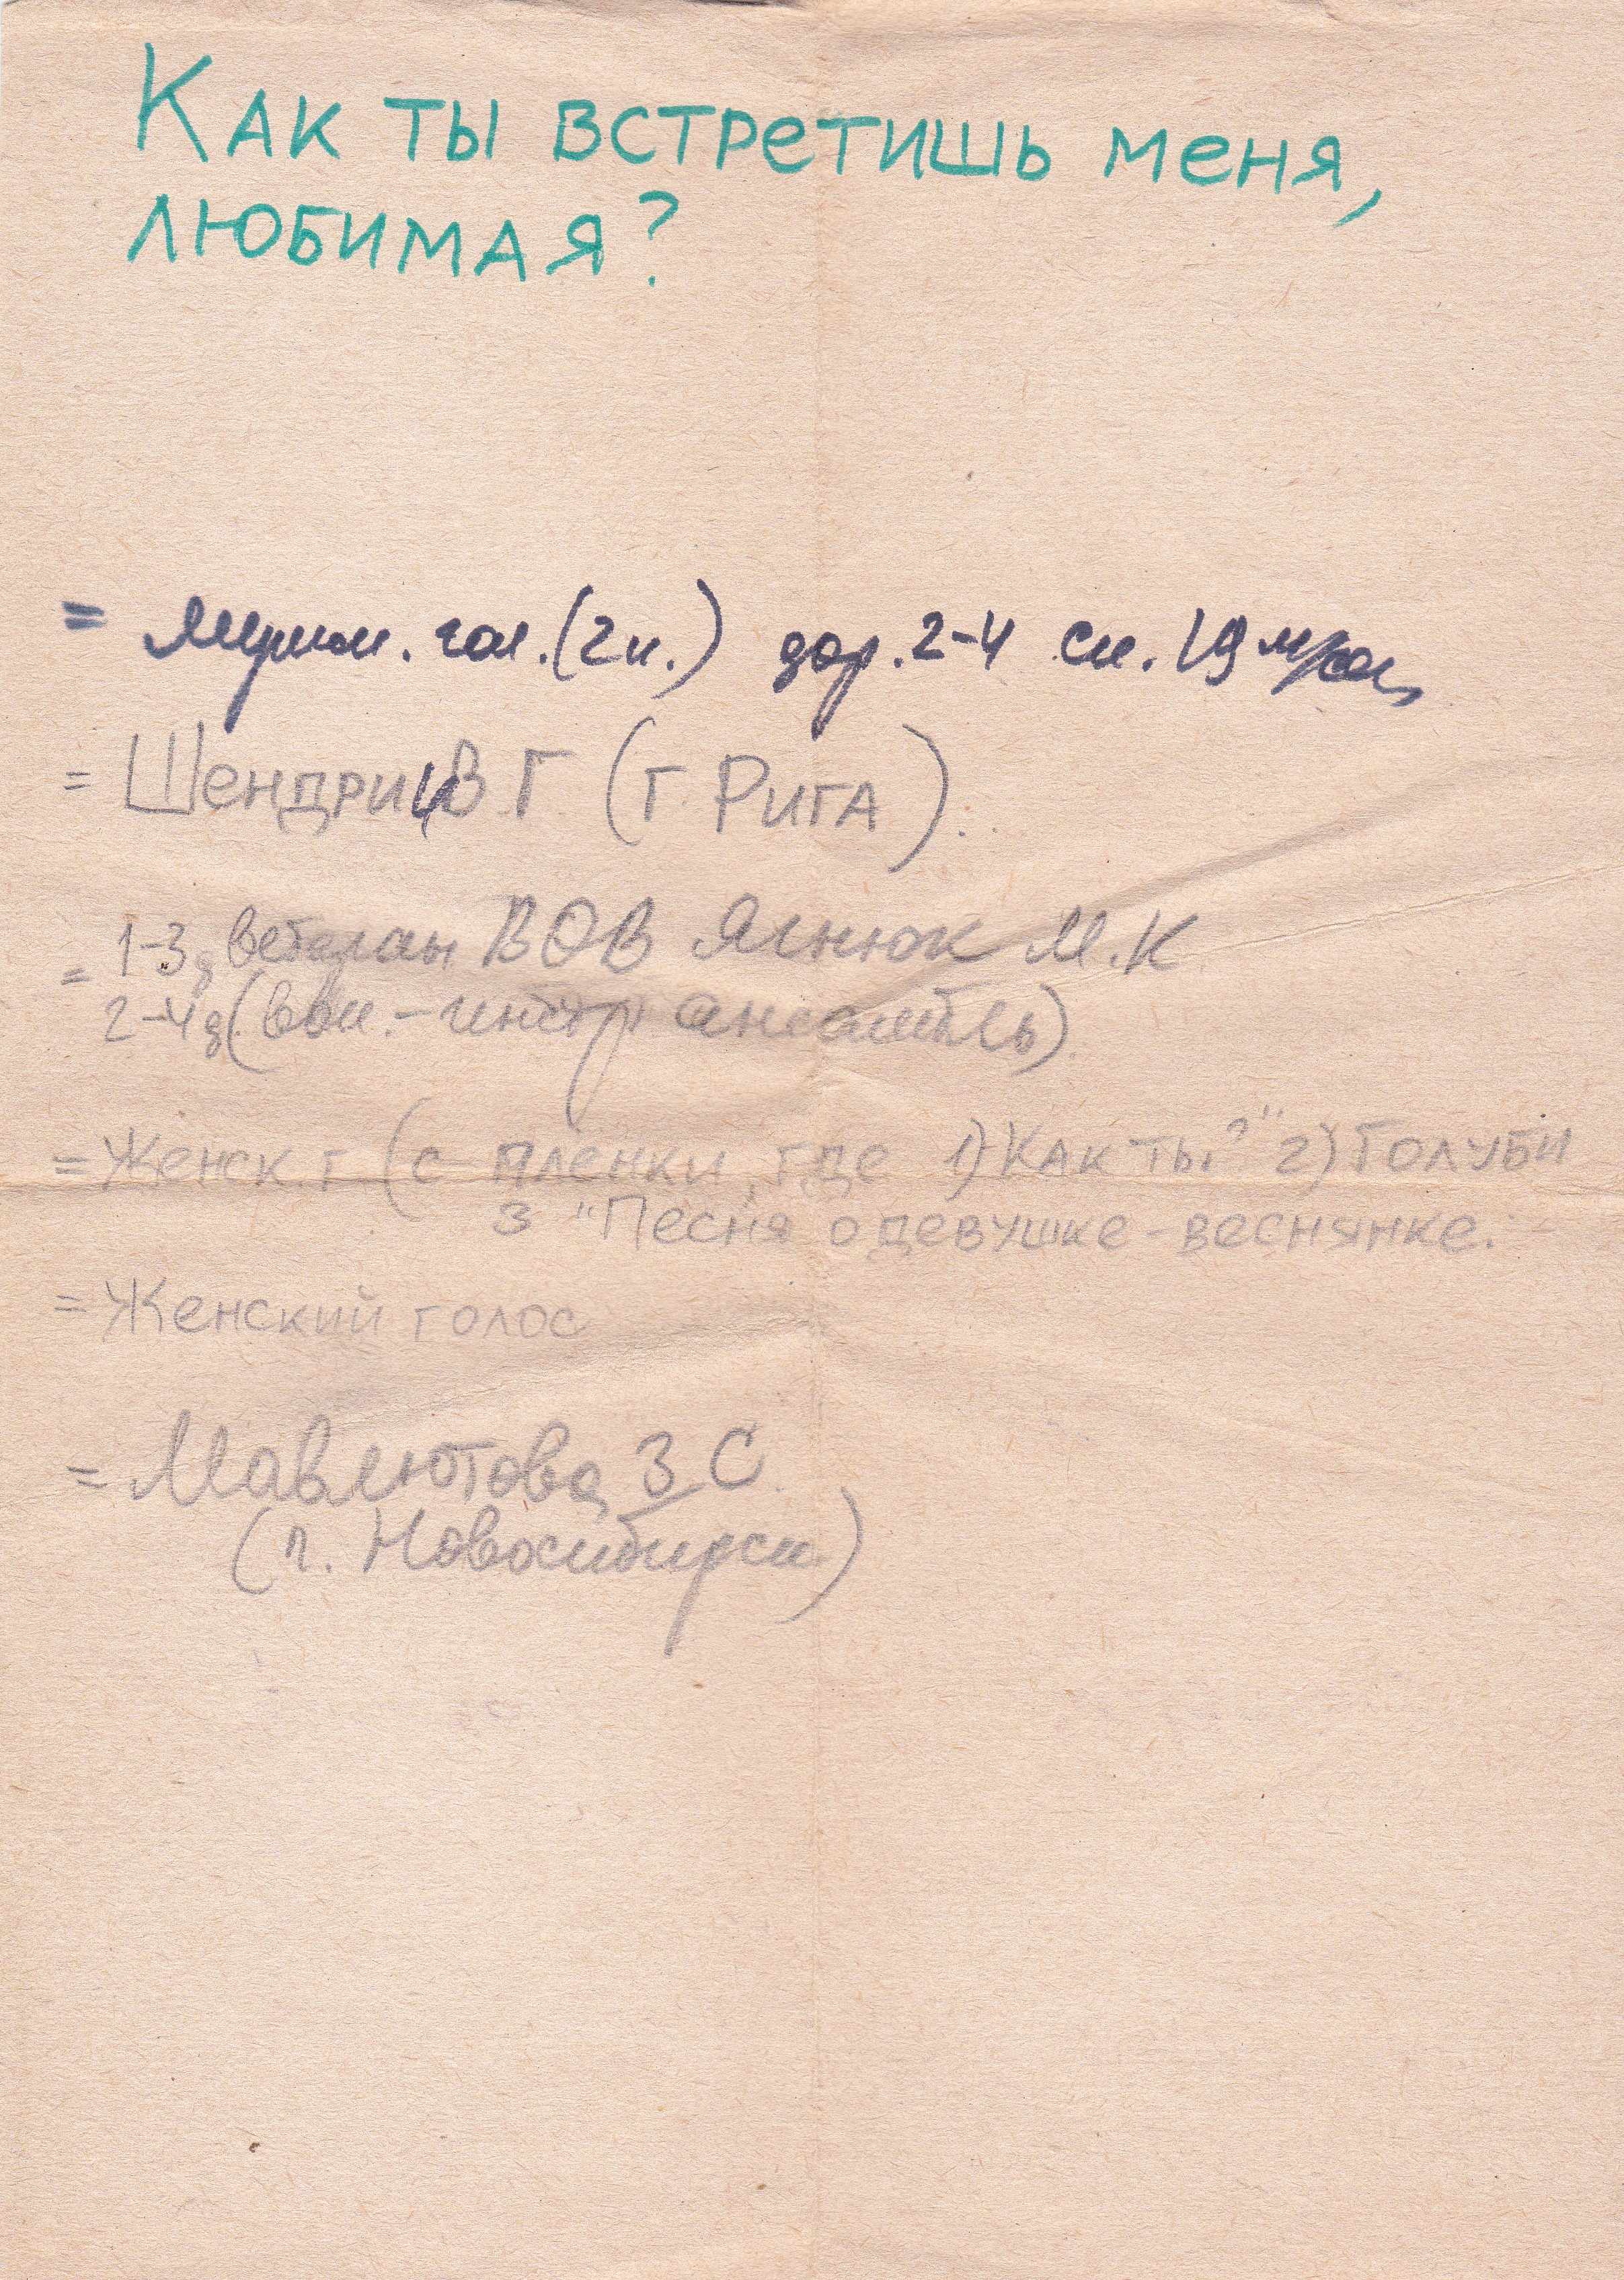 Как ты встретишь меня,
любимая?
= Мужск. гол. (2 к.) дор. 2-4 ск. 19
= Шендрик В. Г. (г. Рига).
= 1-3 д ветеран ВОВ Ягнюк М. К
2-4 д. (вок.-инстр ансамбль).
= Женск. г (с пленки, где 1) Как ты?" 2) Голуби
3 "Песня о девушке-веснянке.
= Женский голос
= Мавлютова З С
(г. Новосибирск)